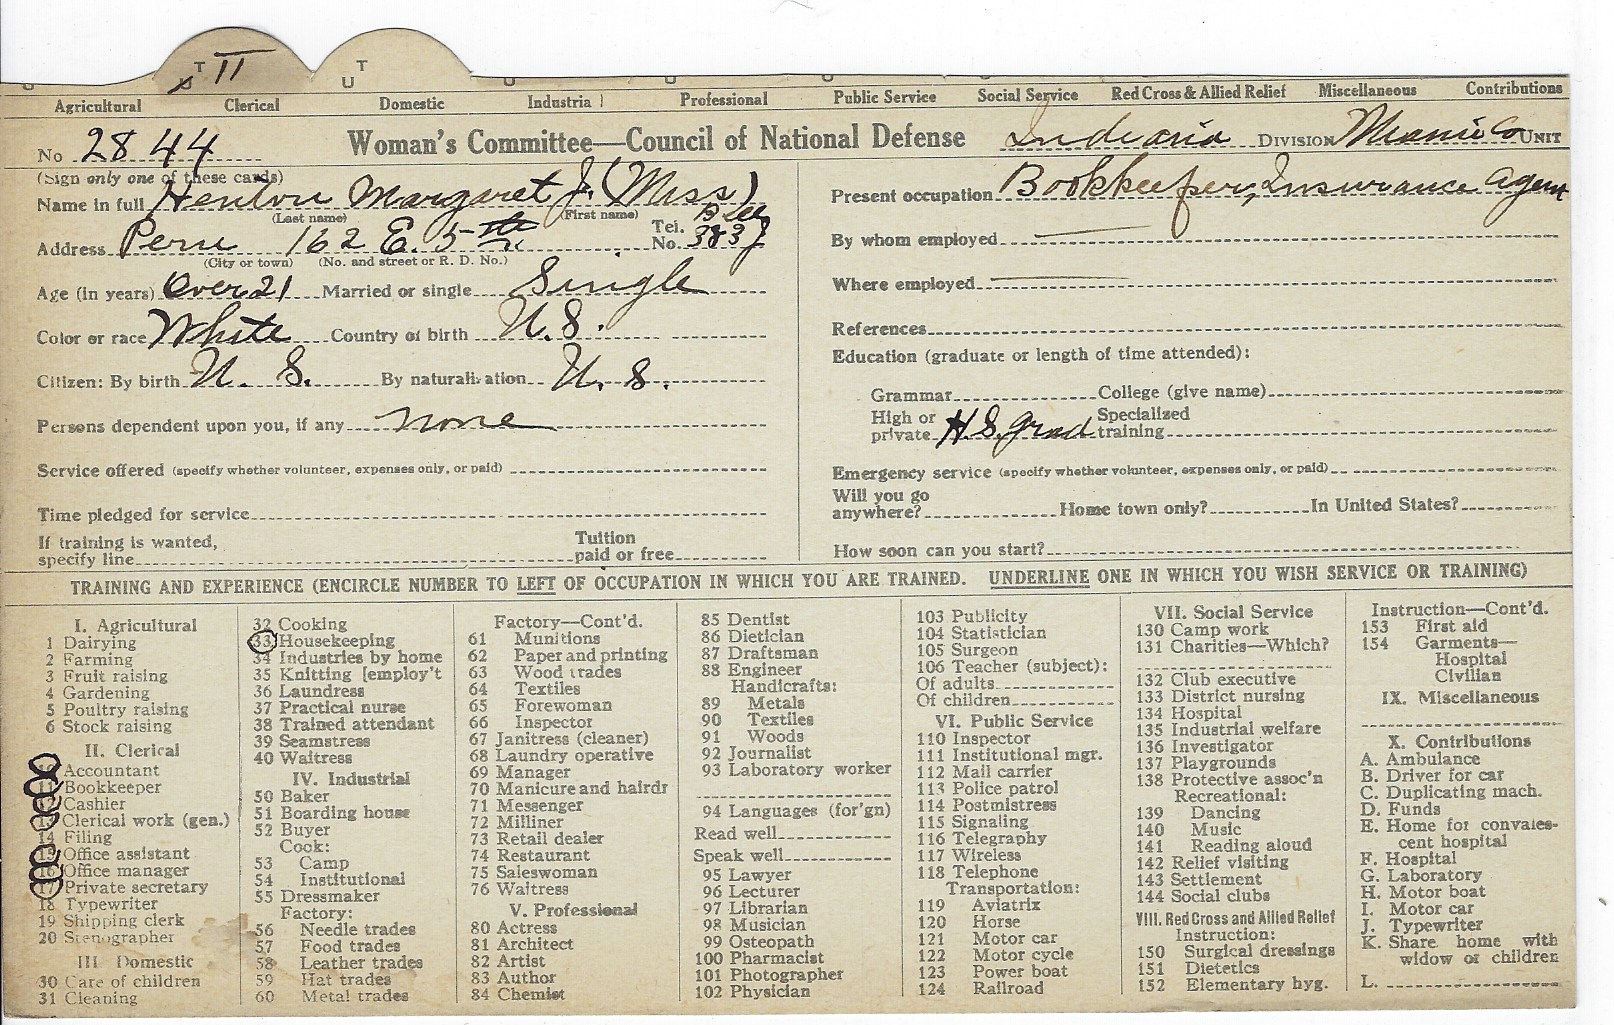 II
T
U T
Agricultural Clerical Domestic Industrial Professional Public Service Social Service Red Cross & Allied Relief Miscellaneous Contributions
No 2844 Woman's Committee—Council of National Defense Indiana DIVISION Miami Co UNIT
(Sign only one of these cards)
Name in full Henton Margaret J. (Miss)
(Last name) (First name)
Address Peru 162 E. 5th Tel. No. Bell 383J
(City or town) (No. and street or R. D. No.)
Age (in years) Over 21 Married or single Single
Color or race White Country of birth U.S.
Citizen: By birth U. S. By naturalization U. S.
Persons dependent upon you, if any none
Service offered (specify whether volunteer, expenses only, or paid)
Time pledged for service
If training is wanted,
specify line Tuition paid or free
Present occupation Bookkeeper, Insurance agent
By whom employed
Where employed
References
Education (graduate or length of time attended):
Grammar College (give name)
High or private H.S. grad Specialized training
Emergency service (specify whether volunteer, expenses only, or paid)
Will you go anywhere? Home town only? In United States?
How soon can you start?
TRAINING AND EXPERIENCE (ENCIRCLE NUMBER TO LEFT OF OCCUPATION IN WHICH YOU ARE TRAINED. UNDERLINE ONE IN WHICH YOU WISH SERVICE OR TRAINING)
I. Agricultural
1 Dairying
2 Farming
3 Fruit raising
4 Gardening
5 Poultry raising
6 Stock raising
II. Clerical
10 Accountant
11 Bookkeeper
12 Cashier
13 Clerical work (gen.)
14 Filing
15 Office assistant
16 Office manager
17 Private secretary
18 Typewriter
19 Shipping clerk
20 Stenographer
III Domestic
30 Care of children
31 Cleaning
32 Cooking
33 Housekeeping
34 Industries by home
35 Knitting [employ't
36 Laundress
37 Practical nurse
38 Trained attendant
39 Seamstress
40 Waitress
IV. Industrial
50 Baker
51 Boarding house
52 Buyer
Cook:
53 Camp
54 Institutional
55 Dressmaker
Factory:
56 Needle trades
57 Food trades
58 Leather trades
59 Hat trades
60 Metal trades
Factory—Cont'd.
61 Munitions
62 Paper and printing
63 Wood trades
64 Textiles
65 Forewoman
66 Inspector
67 Janitress (cleaner)
68 Laundry operative
69 Manager
70 Manicure and hairdr
71 Messenger
72 Milliner
73 Retail dealer
74 Restaurant
75 Saleswoman
76 Waitress
V. Professional
80 Actress
81 Architect
82 Artist
83 Author
84 Chemist
85 Dentist
86 Dietician
87 Draftsman
88 Engineer
Handicrafts:
89 Metals
90 Textiles
91 Woods
92 Journalist
93 Laboratory worker
94 Languages (for'gn)
Read well
Speak well
95 Lawyer
96 Lecturer
97 Librarian
98 Musician
99 Osteopath
100 Pharmacist
101 Photographer
102 Physician
103 Publicity
104 Statistician
105 Surgeon
106 Teacher (subject):
Of adults
Of children
VI. Public Service
110 Inspector
111 Institutional mgr.
112 Mail carrier
113 Police patrol
114 Postmistress
115 Signaling
116 Telegraphy
117 Wireless
118 Telephone
Transportation:
119 Aviatrix
120 Horse
121 Motor car
122 Motor cycle
123 Power boat
124 Railroad
VII. Social Service
130 Camp work
131 Charities—Which?
132 Club executive
133 District nursing
134 Hospital
135 Industrial welfare
136 Investigator
137 Playgrounds
138 Protective assoc'n
Recreational:
139 Dancing
140 Music
141 Reading aloud
142 Relief visiting
143 Settlement
144 Social clubs
VIII. Red Cross and Allied Relief
Instruction:
150 Surgical dressings
151 Dietetics
152 Elementary hyg.
Instruction—Cont'd.
153 First aid
154 Garments—
Hospital
Civilian
IX. Miscellaneous
X. Contributions
A. Ambulance
B. Driver for car
C. Duplicating mach.
D. Funds
E. Home for convales-
cent hospital
F. Hospital
G. Laboratory
H. Motor boat
I. Motor car
J. Typewriter
K. Share home with
widow or children
L.